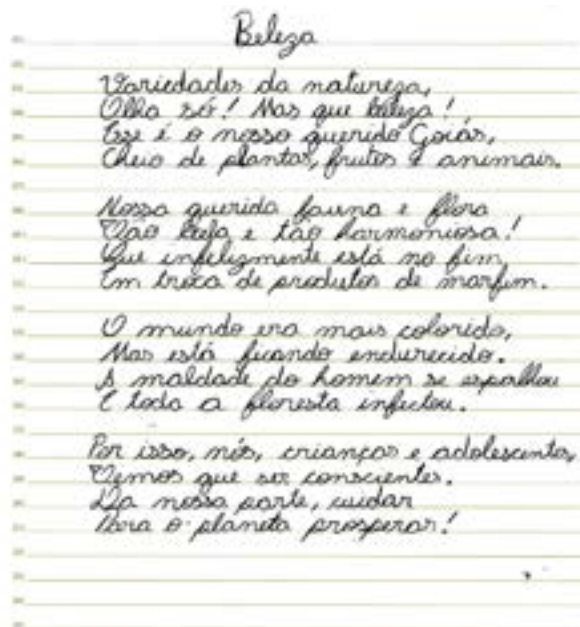 Beleza
Variedades da natureza,
Olha só! Mas que beleza!
Esse é o nosso querido Goiás,
Cheio de plantas, frutos e animais.
Nossa querida fauna e flora
Tão bela e tão harmoniosa!
Que infelizmente está no fim,
Em troca de produtos de marfim.
O mundo era mais colorido,
Mas está ficando endurecido.
A maldade do homem se espalhou
E toda a floresta infectou.
Por isso, nós, crianças e adolescentes,
Temos que ser conscientes.
Da nossa parte, cuidar
Para o planeta prosperar!